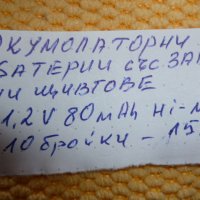 АКУМОЛАТОРНИ
БАТЕРИИ СЪС ЗА
НИ ЩИФТОВЕ
1,2 V 80 mAh Ni-M
10 БРОЙКИ - 15